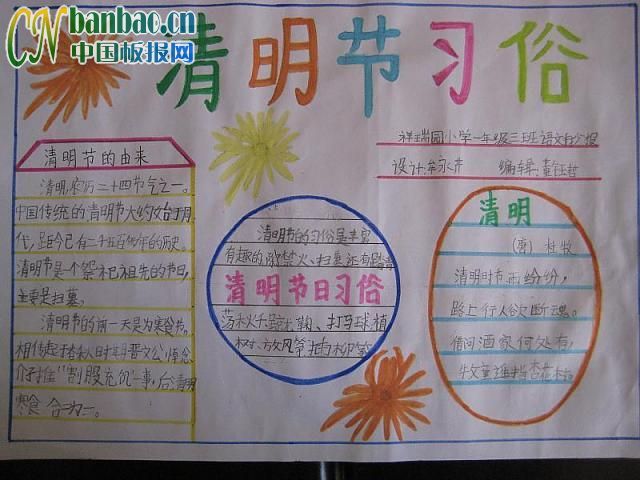 CN banbao.cn
中国板报网
清明节习俗
祥瑞园小学一年级三班语文手抄报
设计:牟永卉 编辑:董钰哲
清明节的由来
清明,农历二十四节气之一。
中国传统的清明节大约始于周
代,距今已有二千五百多年的历史。
清明节是一个祭祀祖先的节日,
主要是扫墓。
清明节的前一天是为寒食节。
相传起于春秋时期晋文公,悼念
介子推“割股充饥”一事,后清明
寒食 合二为一。
清明节的习俗是丰富
有趣的,除禁火、扫墓,还有踏青
清明节日习俗
荡秋千、蹴鞠、打马球、植
树、放风筝、插柳等
清明
(唐) 杜牧
清明时节雨纷纷,
路上行人欲断魂。
借问酒家何处有,
牧童遥指杏花村。